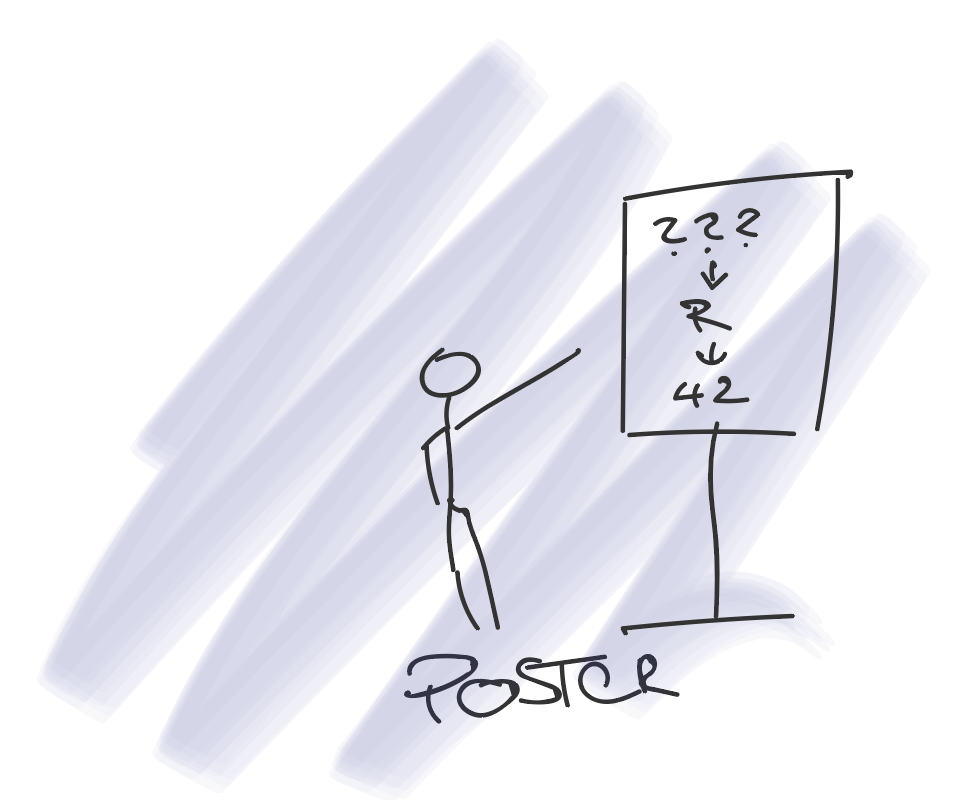 ???
↓
R
↓
42
POSTER